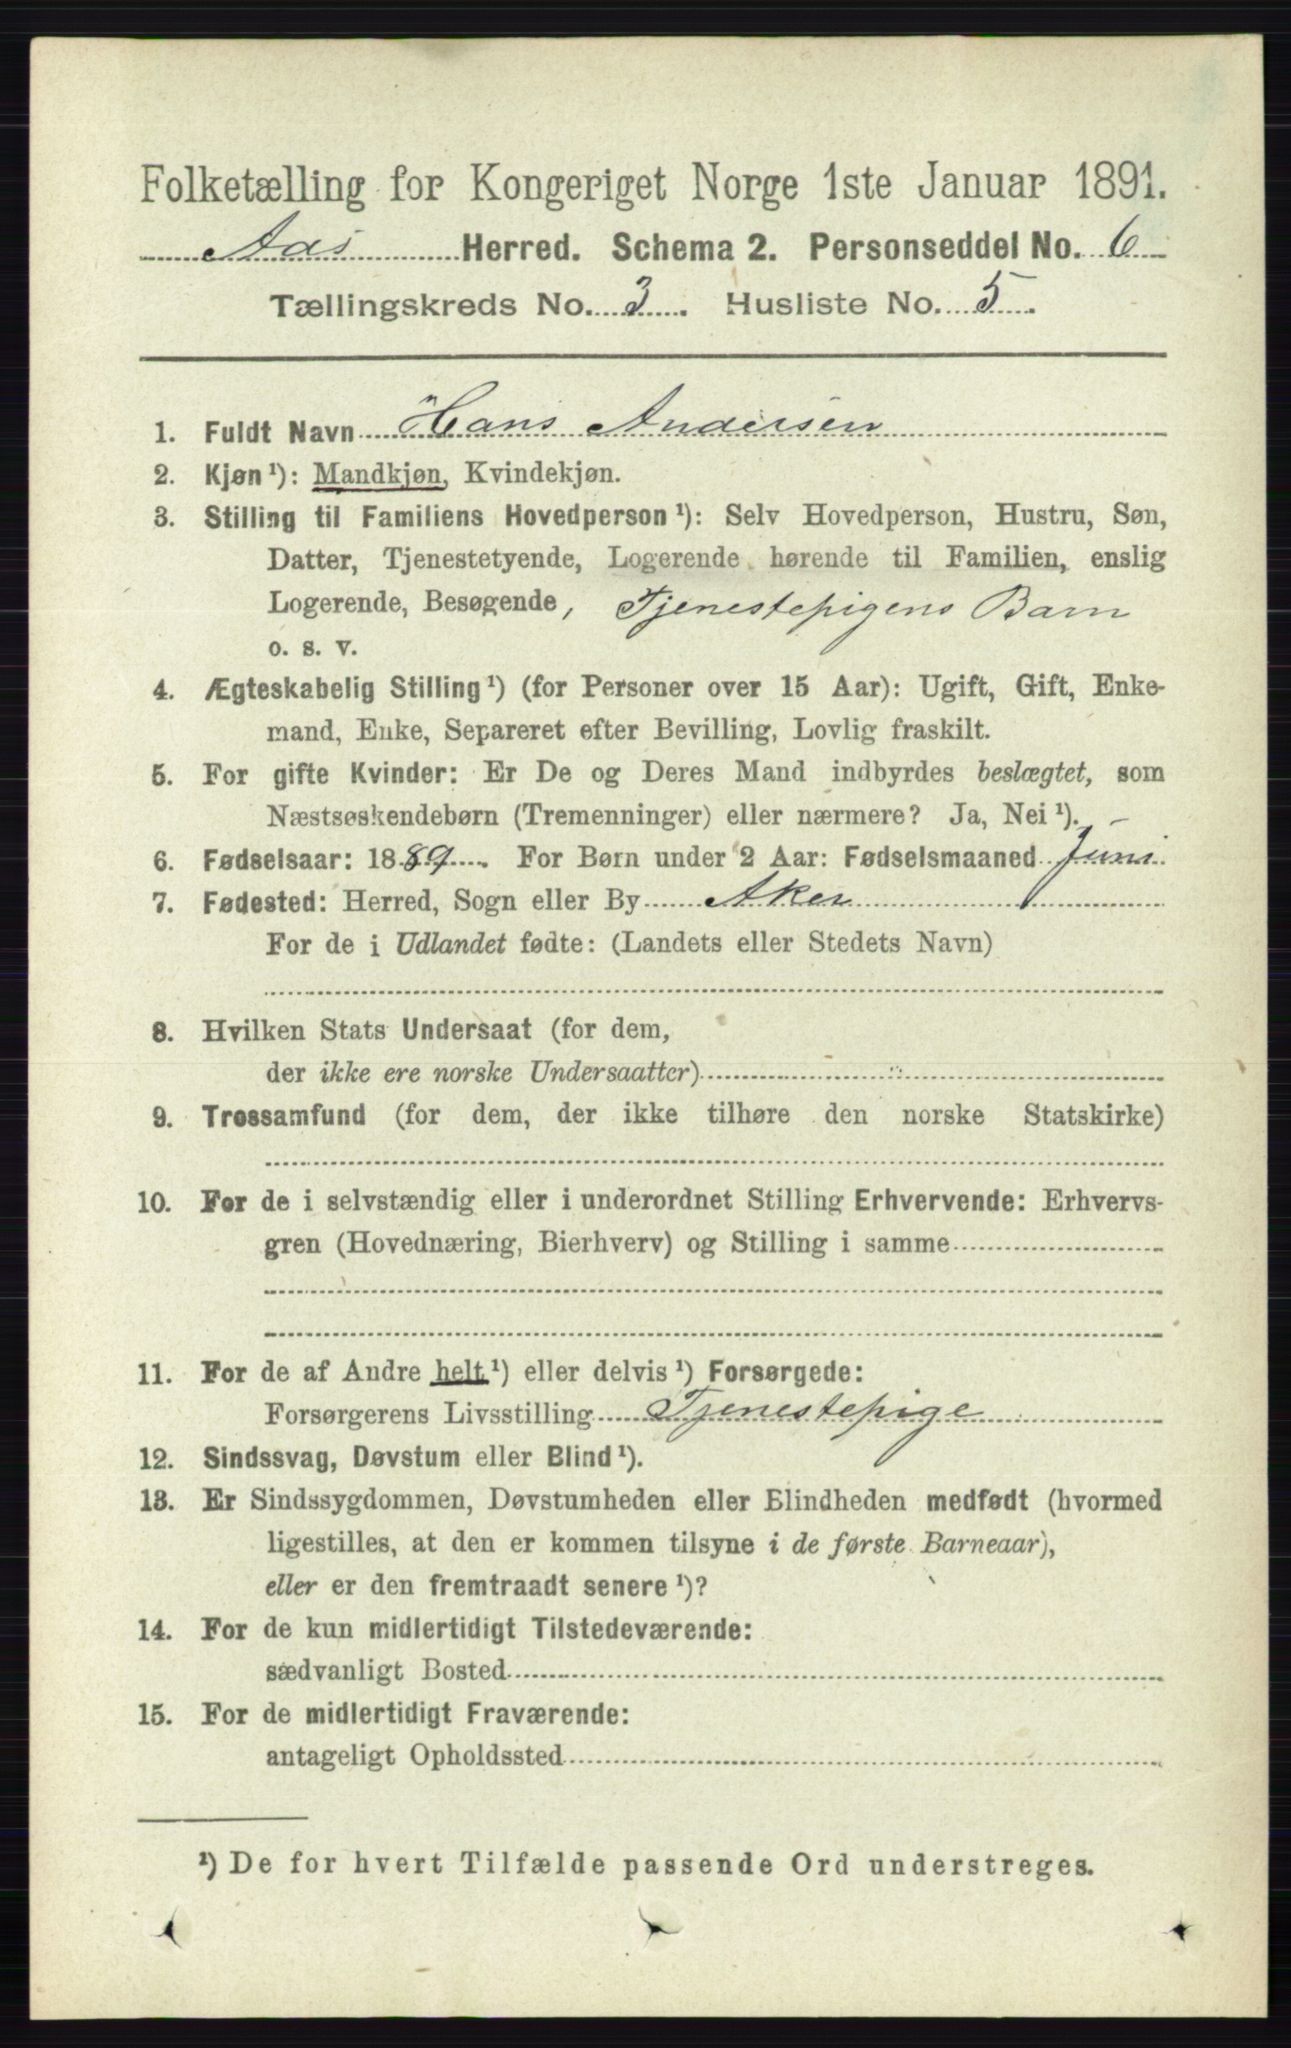 Folketælling for Kongeriget Norge 1ste Januar 1891.
Aas Herred. Schema 2. Personseddel No. 6
Tællingskreds No. 3. Husliste No. 5.
1. Fuldt Navn Hans Andersen
2. Kjøn ¹): Mandkjøn, Kvindekjøn.
3. Stilling til Familiens Hovedperson ¹): Selv Hovedperson, Hustru, Søn,
Datter, Tjenestetyende, Logerende hørende til Familien, enslig
Logerende, Besøgende, Tjenestepigens Barn
o. s. v.
4. Ægteskabelig Stilling ¹) (for Personer over 15 Aar): Ugift, Gift, Enke-
mand, Enke, Separeret efter Bevilling, Lovlig fraskilt.
5. For gifte Kvinder: Er De og Deres Mand indbyrdes beslægtet, som
Næstsøskendebørn (Tremenninger) eller nærmere? Ja, Nei ¹).
6. Fødselsaar: 1889. For Børn under 2 Aar: Fødselsmaaned Juni
7. Fødested: Herred, Sogn eller By Aker
For de i Udlandet fødte: (Landets eller Stedets Navn)
8. Hvilken Stats Undersaat (for dem,
der ikke ere norske Undersaatter)
9. Trossamfund (for dem, der ikke tilhøre den norske Statskirke)
10. For de i selvstændig eller i underordnet Stilling Erhvervende: Erhvervs-
gren (Hovednæring, Bierhverv) og Stilling i samme
11. For de af Andre helt ¹) eller delvis ¹) Forsørgede:
Forsørgerens Livsstilling Tjenestepige
12. Sindssvag, Døvstum eller Blind ¹).
13. Er Sindssygdommen, Døvstumheden eller Blindheden medfødt (hvormed
ligestilles, at den er kommen tilsyne i de første Barneaar),
eller er den fremtraadt senere ¹)?
14. For de kun midlertidigt Tilstedeværende:
sædvanligt Bosted
15. For de midlertidigt Fraværende:
antageligt Opholdssted
¹) De for hvert Tilfælde passende Ord understreges.